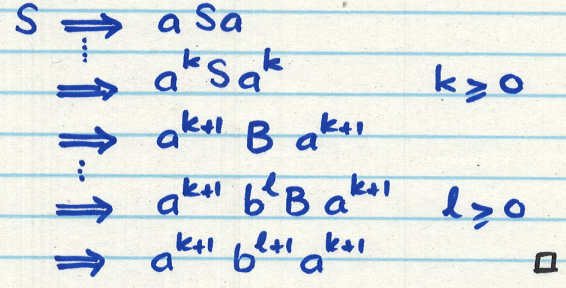 S ⟹ a S a
⋮
⟹ aᵏ S aᵏ k ⩾ 0
⟹ aᵏ⁺¹ B aᵏ⁺¹
⋮
⟹ aᵏ⁺¹ bˡ B aᵏ⁺¹ l ⩾ 0
⟹ aᵏ⁺¹ bˡ⁺¹ aᵏ⁺¹ □